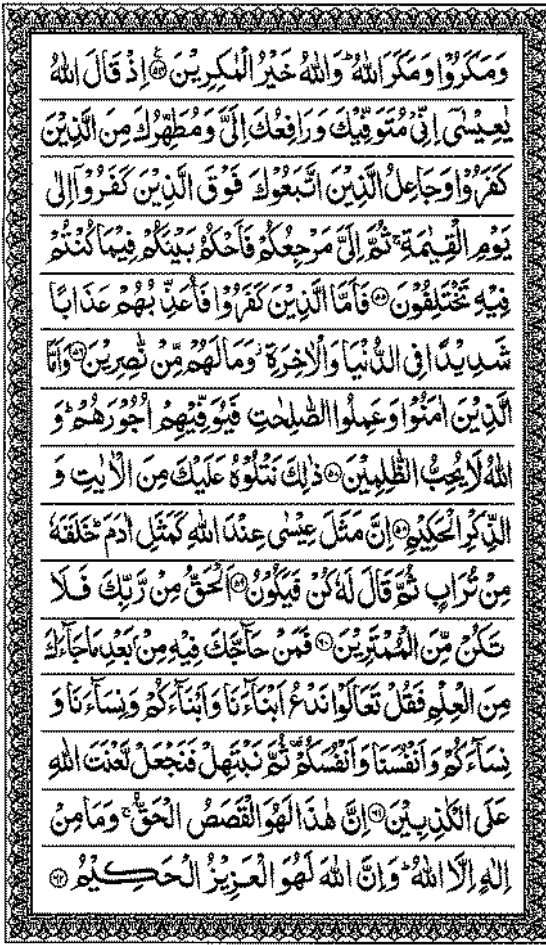 وَمَكَرُوْا وَمَكَرَ اللّٰهُ ؕ وَاللّٰهُ خَيْرُ الْمٰكِرِيْنَ ﴿۵۴﴾ اِذْ قَالَ اللّٰهُ
يٰعِيْسٰۤى اِنِّىْ مُتَوَفِّيْكَ وَرَافِعُكَ اِلَىَّ وَمُطَهِّرُكَ مِنَ الَّذِيْنَ
كَفَرُوْا وَجَاعِلُ الَّذِيْنَ اتَّبَعُوْكَ فَوْقَ الَّذِيْنَ كَفَرُوْۤا اِلٰى
يَوْمِ الْقِيٰمَةِ ۚ ثُمَّ اِلَىَّ مَرْجِعُكُمْ فَاَحْكُمُ بَيْنَكُمْ فِيْمَا كُنْتُمْ
فِيْهِ تَخْتَلِفُوْنَ ﴿۵۵﴾ فَاَمَّا الَّذِيْنَ كَفَرُوْا فَاُعَذِّبُهُمْ عَذَابًا
شَدِيْدًا فِى الدُّنْيَا وَالْاٰخِرَةِ ؗ وَمَا لَهُمْ مِّنْ نّٰصِرِيْنَ ﴿۵۶﴾ وَاَمَّا
الَّذِيْنَ اٰمَنُوْا وَعَمِلُوا الصّٰلِحٰتِ فَيُوَفِّيْهِمْ اُجُوْرَهُمْ ؕ وَ
اللّٰهُ لَا يُحِبُّ الظّٰلِمِيْنَ ﴿۵۷﴾ ذٰلِكَ نَتْلُوْهُ عَلَيْكَ مِنَ الْاٰيٰتِ وَ
الذِّكْرِ الْحَكِيْمِ ﴿۵۸﴾ اِنَّ مَثَلَ عِيْسٰى عِنْدَ اللّٰهِ كَمَثَلِ اٰدَمَ ؕ خَلَقَهٗ
مِنْ تُرَابٍ ثُمَّ قَالَ لَهٗ كُنْ فَيَكُوْنُ ﴿۵۹﴾ اَلْحَقُّ مِنْ رَّبِّكَ فَلَا
تَكُنْ مِّنَ الْمُمْتَرِيْنَ ﴿۶۰﴾ فَمَنْ حَآجَّكَ فِيْهِ مِنْۢ بَعْدِ مَا جَآءَكَ
مِنَ الْعِلْمِ فَقُلْ تَعَالَوْا نَدْعُ اَبْنَآءَنَا وَاَبْنَآءَكُمْ وَنِسَآءَنَا وَ
نِسَآءَكُمْ وَاَنْفُسَنَا وَاَنْفُسَكُمْ ۫ ثُمَّ نَبْتَهِلْ فَنَجْعَلْ لَّعْنَتَ اللّٰهِ
عَلَى الْكٰذِبِيْنَ ﴿۶۱﴾ اِنَّ هٰذَا لَهُوَ الْقَصَصُ الْحَقُّ ۚ وَمَا مِنْ
اِلٰهٍ اِلَّا اللّٰهُ ؕ وَاِنَّ اللّٰهَ لَهُوَ الْعَزِيْزُ الْحَكِيْمُ ﴿۶۲﴾